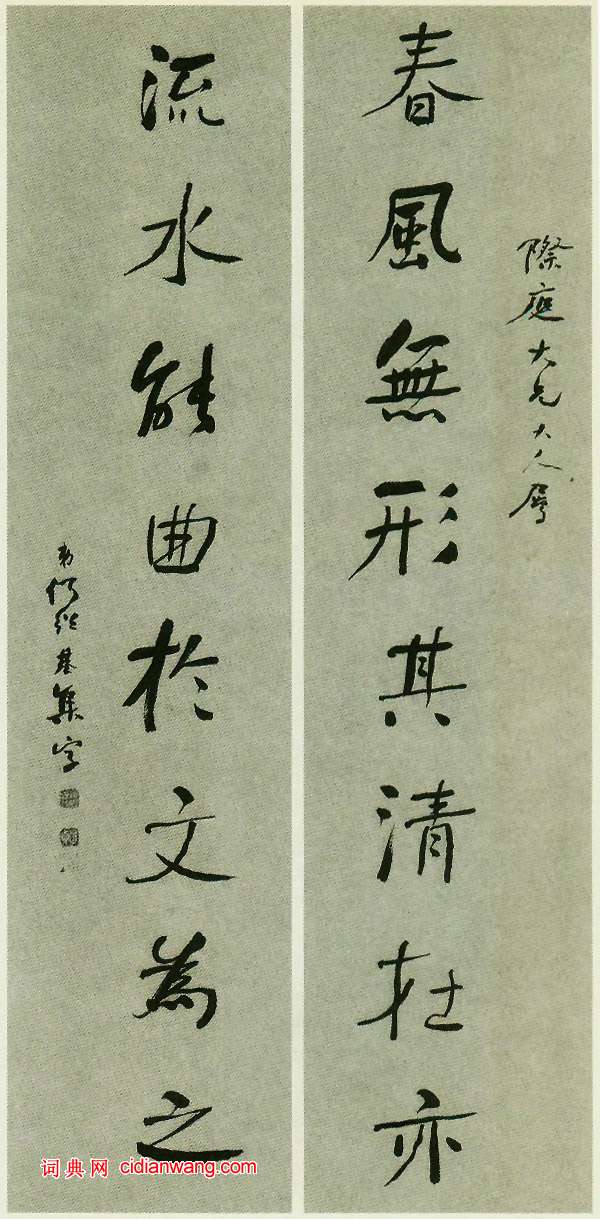 際庭大兄大人屬
春風無形其清在亦
流水能曲於文為之
弟何紹基集字
词典网 cidianwang.com